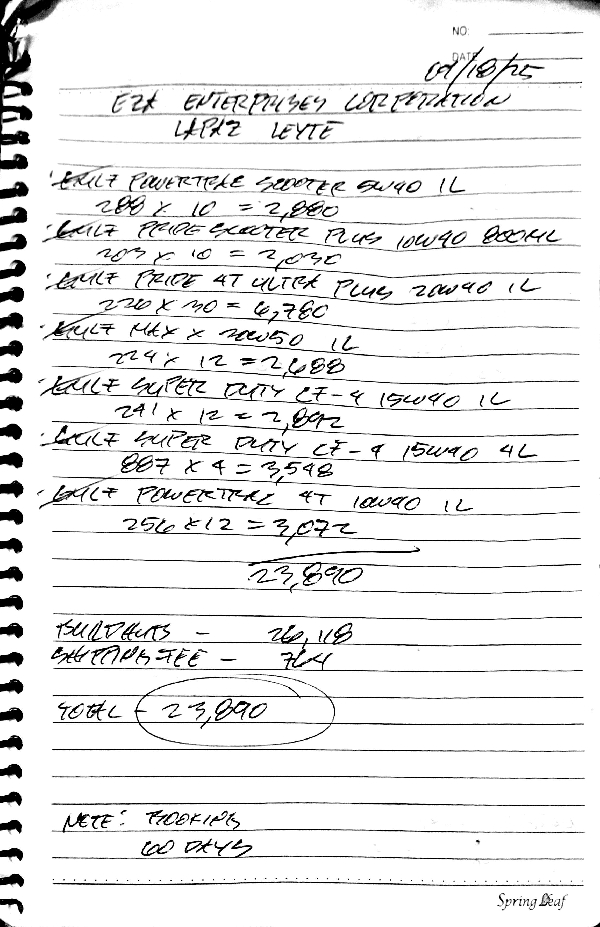 NO.
DATE
09/18/25
EZA ENTERPRISES CORPORATION
LAPAZ LEYTE
GULF POWERTRAC SCOOTER 5W40 1L
288 x 10 = 2,880
GULF PRIDE SCOOTER PLUS 10W40 800ML
203 x 10 = 2,030
GULF PRIDE 4T ULTRA PLUS 20W40 1L
226 x 30 = 6,780
GULF MAX X 20W50 1L
224 x 12 = 2,688
GULF SUPER DUTY CF-4 15W40 1L
241 x 12 = 2,892
GULF SUPER DUTY CF-4 15W40 4L
887 x 4 = 3,548
GULF POWERTRAC 4T 10W40 1L
256 x 12 = 3,072
23,890
- 26,118
SHIPPING FEE - 764
TOTAL - 23,890
NOTE: BOOKING
60 DAYS
Spring Leaf